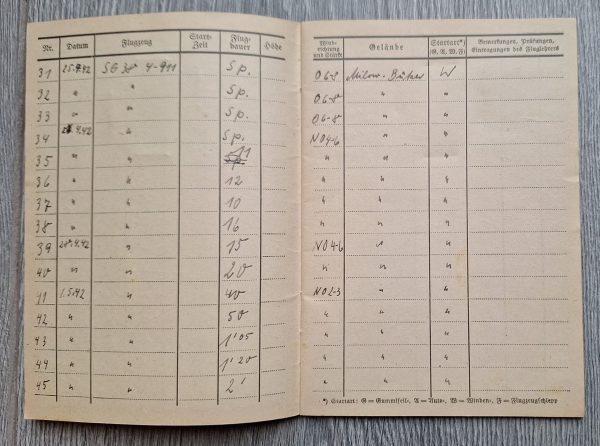 Nr. Datum Flugzeug Start-Zeit Flug-dauer Höhe Wind-richtung und Stärke Gelände Startart*) (G, A, W, F) Bemerkungen, Prüfungen, Eintragungen des Fluglehrers
31 25.4.42 SG 38 4-911 Sp. O 6-8 W
32 " " Sp. O 6-8 " "
33 " " Sp. O 6-8 " "
34 .4.42 " Sp. NO 4-6 " "
35 " " 11 " " "
36 " " 12 " " "
37 " " 10 " " "
38 " " 16 " " "
39 28.4.42 " 15 NO 4-6 " "
40 " " 20 " " "
41 1.5.42 " 40 NO 2-3 " "
42 " " 50 " " "
43 " " 1'05 " " "
44 " " 1'20 " " "
45 " " 2' " " "
*) Startart: G = Gummiseil-, A = Auto-, W = Winden-, F = Flugzeugschlepp